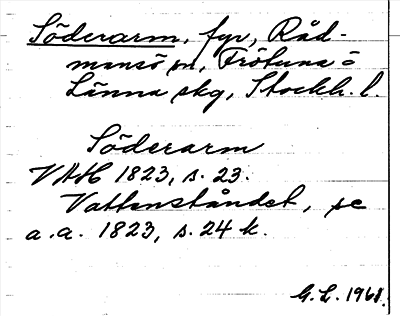 Söderarm, fyr, Råd-
mansö sn, Frötuna o
Länna skg, Stockh. l.
Söderarm
VAH 1823, s. 23.
Vattenståndet, se
a.a. 1823, s. 24 k.
G. L. 1968.